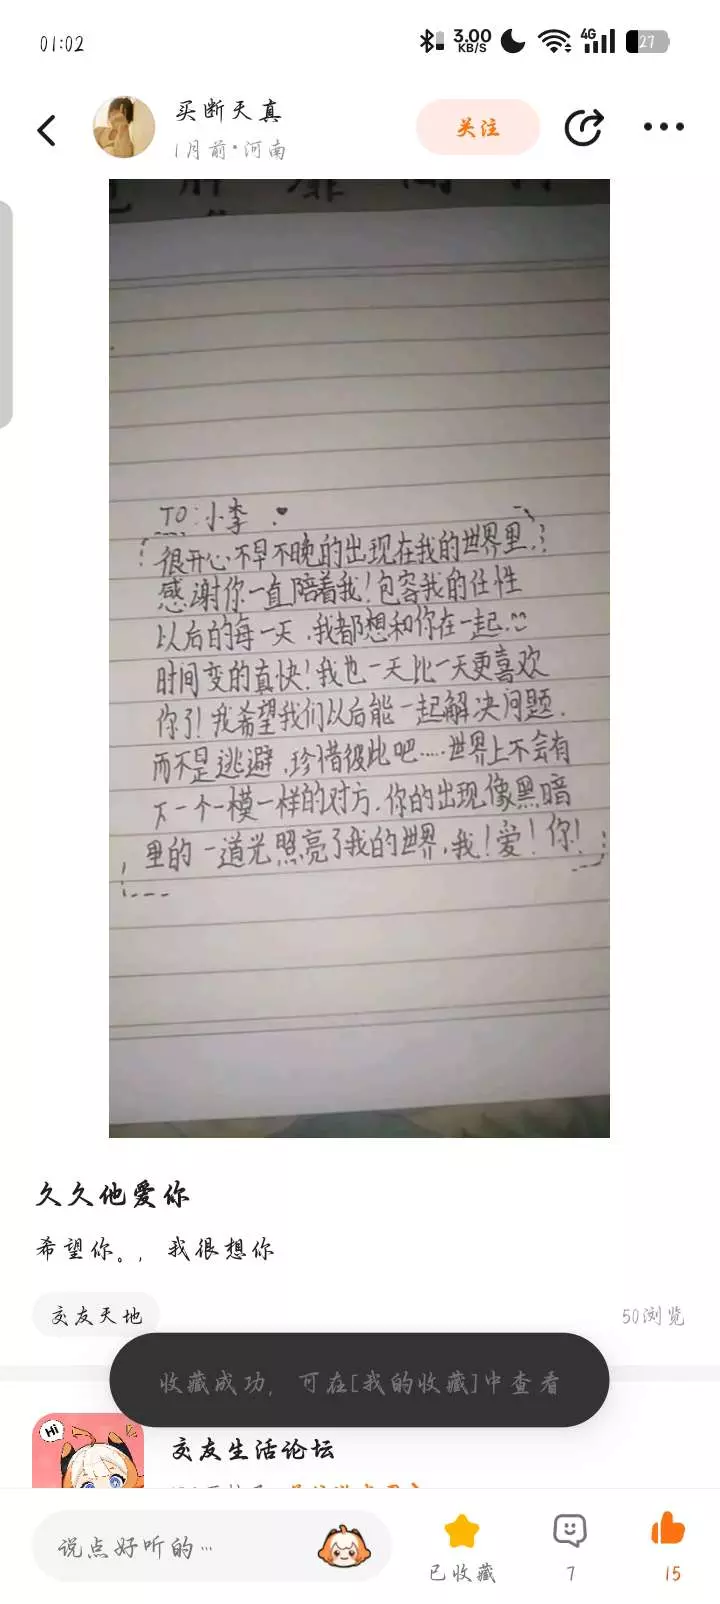 01:02
3.00
KB/S
4G
27
买断天真
1月前·河南
关注
TO:小李 ♥
很开心不早不晚的出现在我的世界里
感谢你一直陪着我！包容我的任性
以后的每一天，我都想和你在一起.
时间变的真快！我也一天比一天更喜欢
你了！我希望我们以后能一起解决问题.
而不是逃避，珍惜彼此吧.....世界上不会有
下一个一模一样的对方.你的出现像黑暗
里的一道光照亮了我的世界,我！爱！你！
久久他爱你
希望你。，我很想你
交友天地
50浏览
收藏成功，可在[我的收藏]中查看
Hi
交友生活论坛
说点好听的…
已收藏
7
15